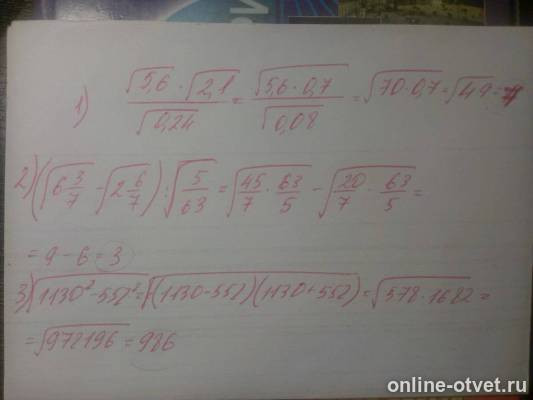 1) √5,6 · √2,1 / √0,24 = √5,6 · 0,7 / √0,08 = √70·0,7 = √49 = 7
2) (√6 3/7 - √2 6/7) : √5/63 = √45/7 · 63/5 - √20/7 · 63/5 =
= 9 - 6 = 3
3) √1130² - 552² = √(1130-552)(1130+552) = √578·1682 =
= √972196 = 986
online-otvet.ru